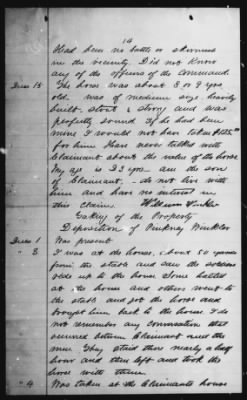 14
Had been no battle or skirmish
in the vicinity. Did not know
any of the officers of the command.
The horse was about 8 or 9 years
old. was of medium size, heavily
built, stout & strong and was
perfectly sound. If he had been
mine I would not have taken
for him. Have never talked with
Claimant about the value of the horse
My age is 33 yrs. am the son
of Claimant, do not live with
him and have no interest in
this claim. William
Taking of the Property
Deposition of Pinkney Winkler
1 Was present
3 I was at the house, about 50 yards
from the stable and saw the soldiers
ride up to the house. Some halted
at the house and others went to
the stable and got the horse and
brought him back to the house. I do
not remember any conversation that
occurred between Claimant and the
men. They staid there nearly a half
hour and then left and took the
horse with them.
" 4 Was taken at the Claimants house